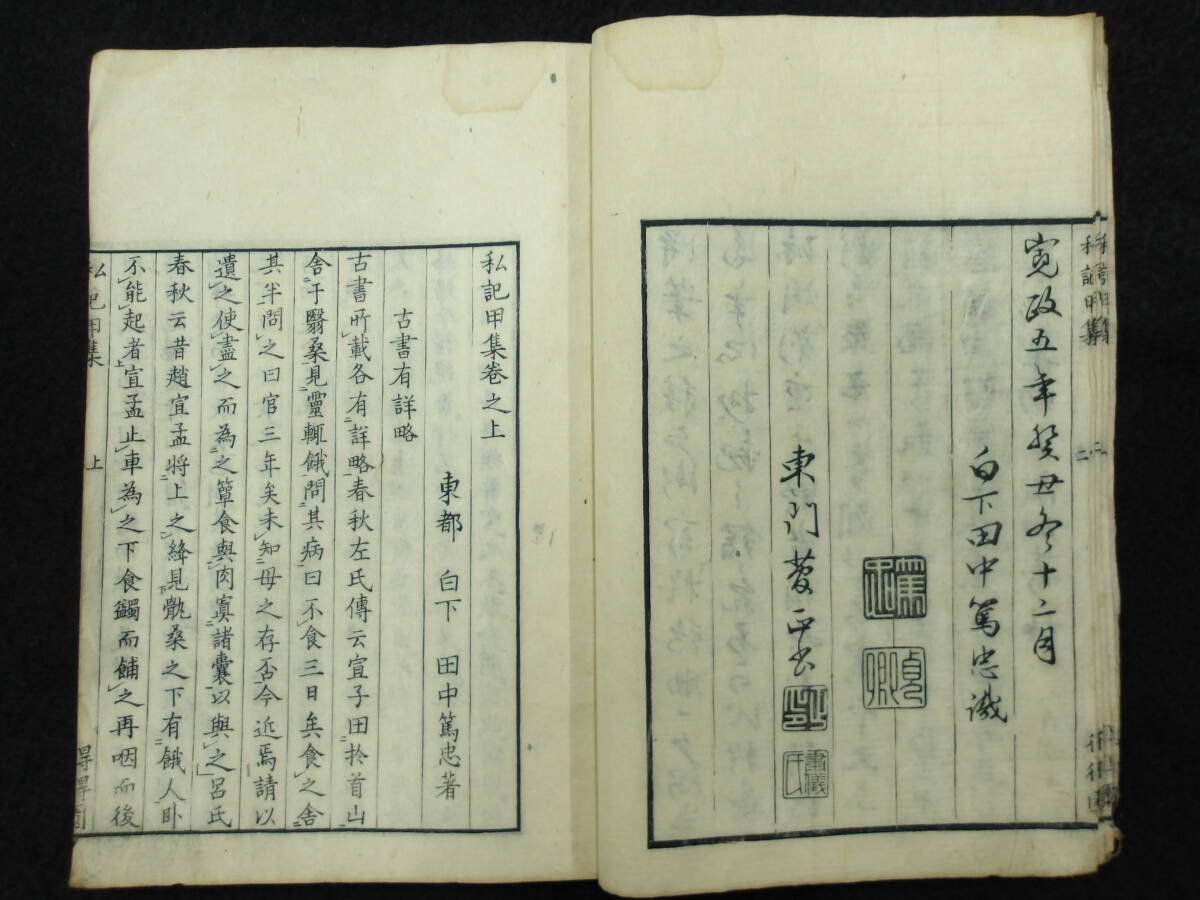 寛政五年癸丑冬十二月
白下田中篤忠識
東門
私記甲集卷之上
東都 白下 田中篤忠著
古書有詳略
古書所載各有詳略春秋左氏傳云宣子田於首山
舍于翳桑見靈輒餓問其病曰不食三日矣食之舍
其半問之曰官三年矣未知母之存否今近焉請以
遺之使盡之而為之簞食與肉寘諸橐以與之呂氏
春秋云昔趙宣孟將上之絳見骫桑之下有餓人臥
不能起者宣孟止車為之下食蠲而餔之再咽而後
私記甲集
上